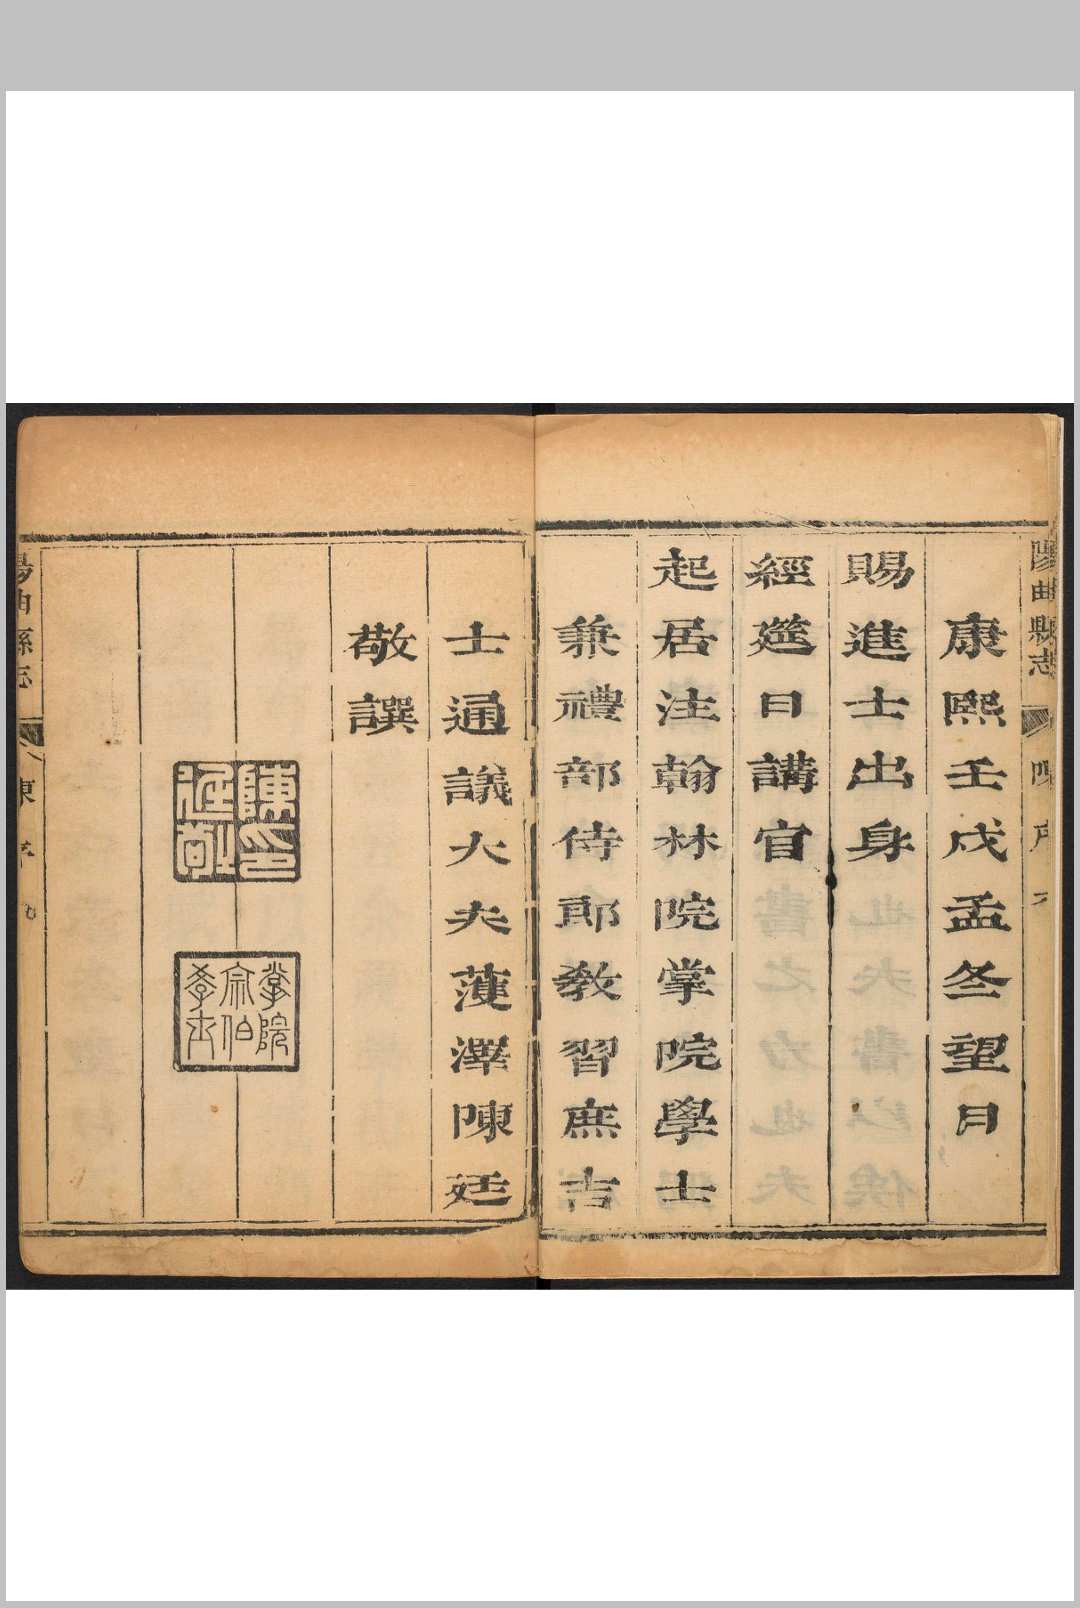 陽曲縣志
陳序
康熙壬戌孟冬望日
賜進士出身
經筵日講官
起居注翰林院掌院學士
兼禮部侍郎教習庶吉
士通議大夫濩澤陳廷
敬譔
陳廷敬印
掌院
宗伯
學士
陽曲縣志
陳序
九